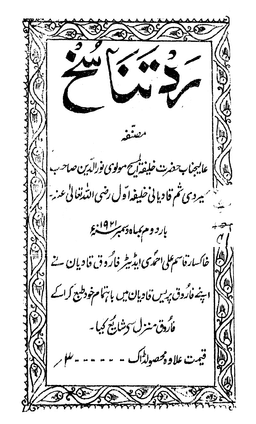 ردّ تناسُخ
مصنفہ
عالیجناب حضرت خلیفۃ المسیح مولوی نورالدین صاحب
بھیروی ثم قادیانی خلیفہ اول رضی اللہ تعالیٰ عنہ
بار دوم بماہ دسمبر ۱۹۲۱ء
خاکسار قاسم علی احمدی ایڈیٹر فاروق قادیان نے
اپنے فاروق پریس قادیان میں باہتمام خود طبع کرا کے
فاروق منزل سے شائع کیا۔
قیمت علاوہ محصولڈاک ------ ۳؍